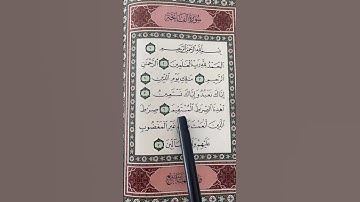 سورة الفاتحة
بسم الله الرحمن الرحيم
الحمد لله رب العلمين الرحمن
الرحيم ملك يوم الدين
إياك نعبد وإياك نستعين
اهدنا الصرط المستقيم صرط
الذين أنعمت غير المغضوب
عليهم الضالين